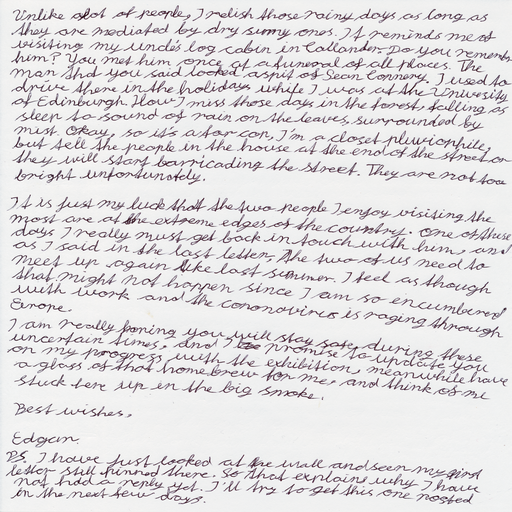 Unlike alot of people, I relish those rainy days as long as
they are mediated by dry sunny ones. It reminds me of
visiting my uncle's log cabin in Callander. Do you remember
him? You met him once at a funeral of all places. The
man that you said looked a spit of Sean Connery. I used to
drive there in the holidays while I was at the University
of Edinburgh. How I miss those days in the forest, falling as
sleep to sound of rain on the leaves, surrounded by
mist. Okay, so it's a far cop, I'm a closet pluviophile,
but tell the people in the house at the end of the street or
they will start barricading the street. They are not too
bright unfortunatly.
It is just my luck that the two people I enjoy visiting the
most are at the extreme edges of the country. One of these
days I really must get back in touch with him, and
as I said in the last letter, the two of us need to
meet up again like last summer. I feel as though
that might not happen since I am so encumbered
with work and the coronovirus is raging through
Europe.
I am really hoping you will stay safe during these
uncertain times, and I promise to update you
on my progress with the exhibition, meanwhile have
a glass of that home brew for me, and think of me
stuck here up in the big smoke.
Best wishes,
Edgar.
P.S. I have just looked at the wall and seen my first
letter still pinned there. So that explains why I have
not had a reply yet. I'll try to get this one posted
in the next few days.